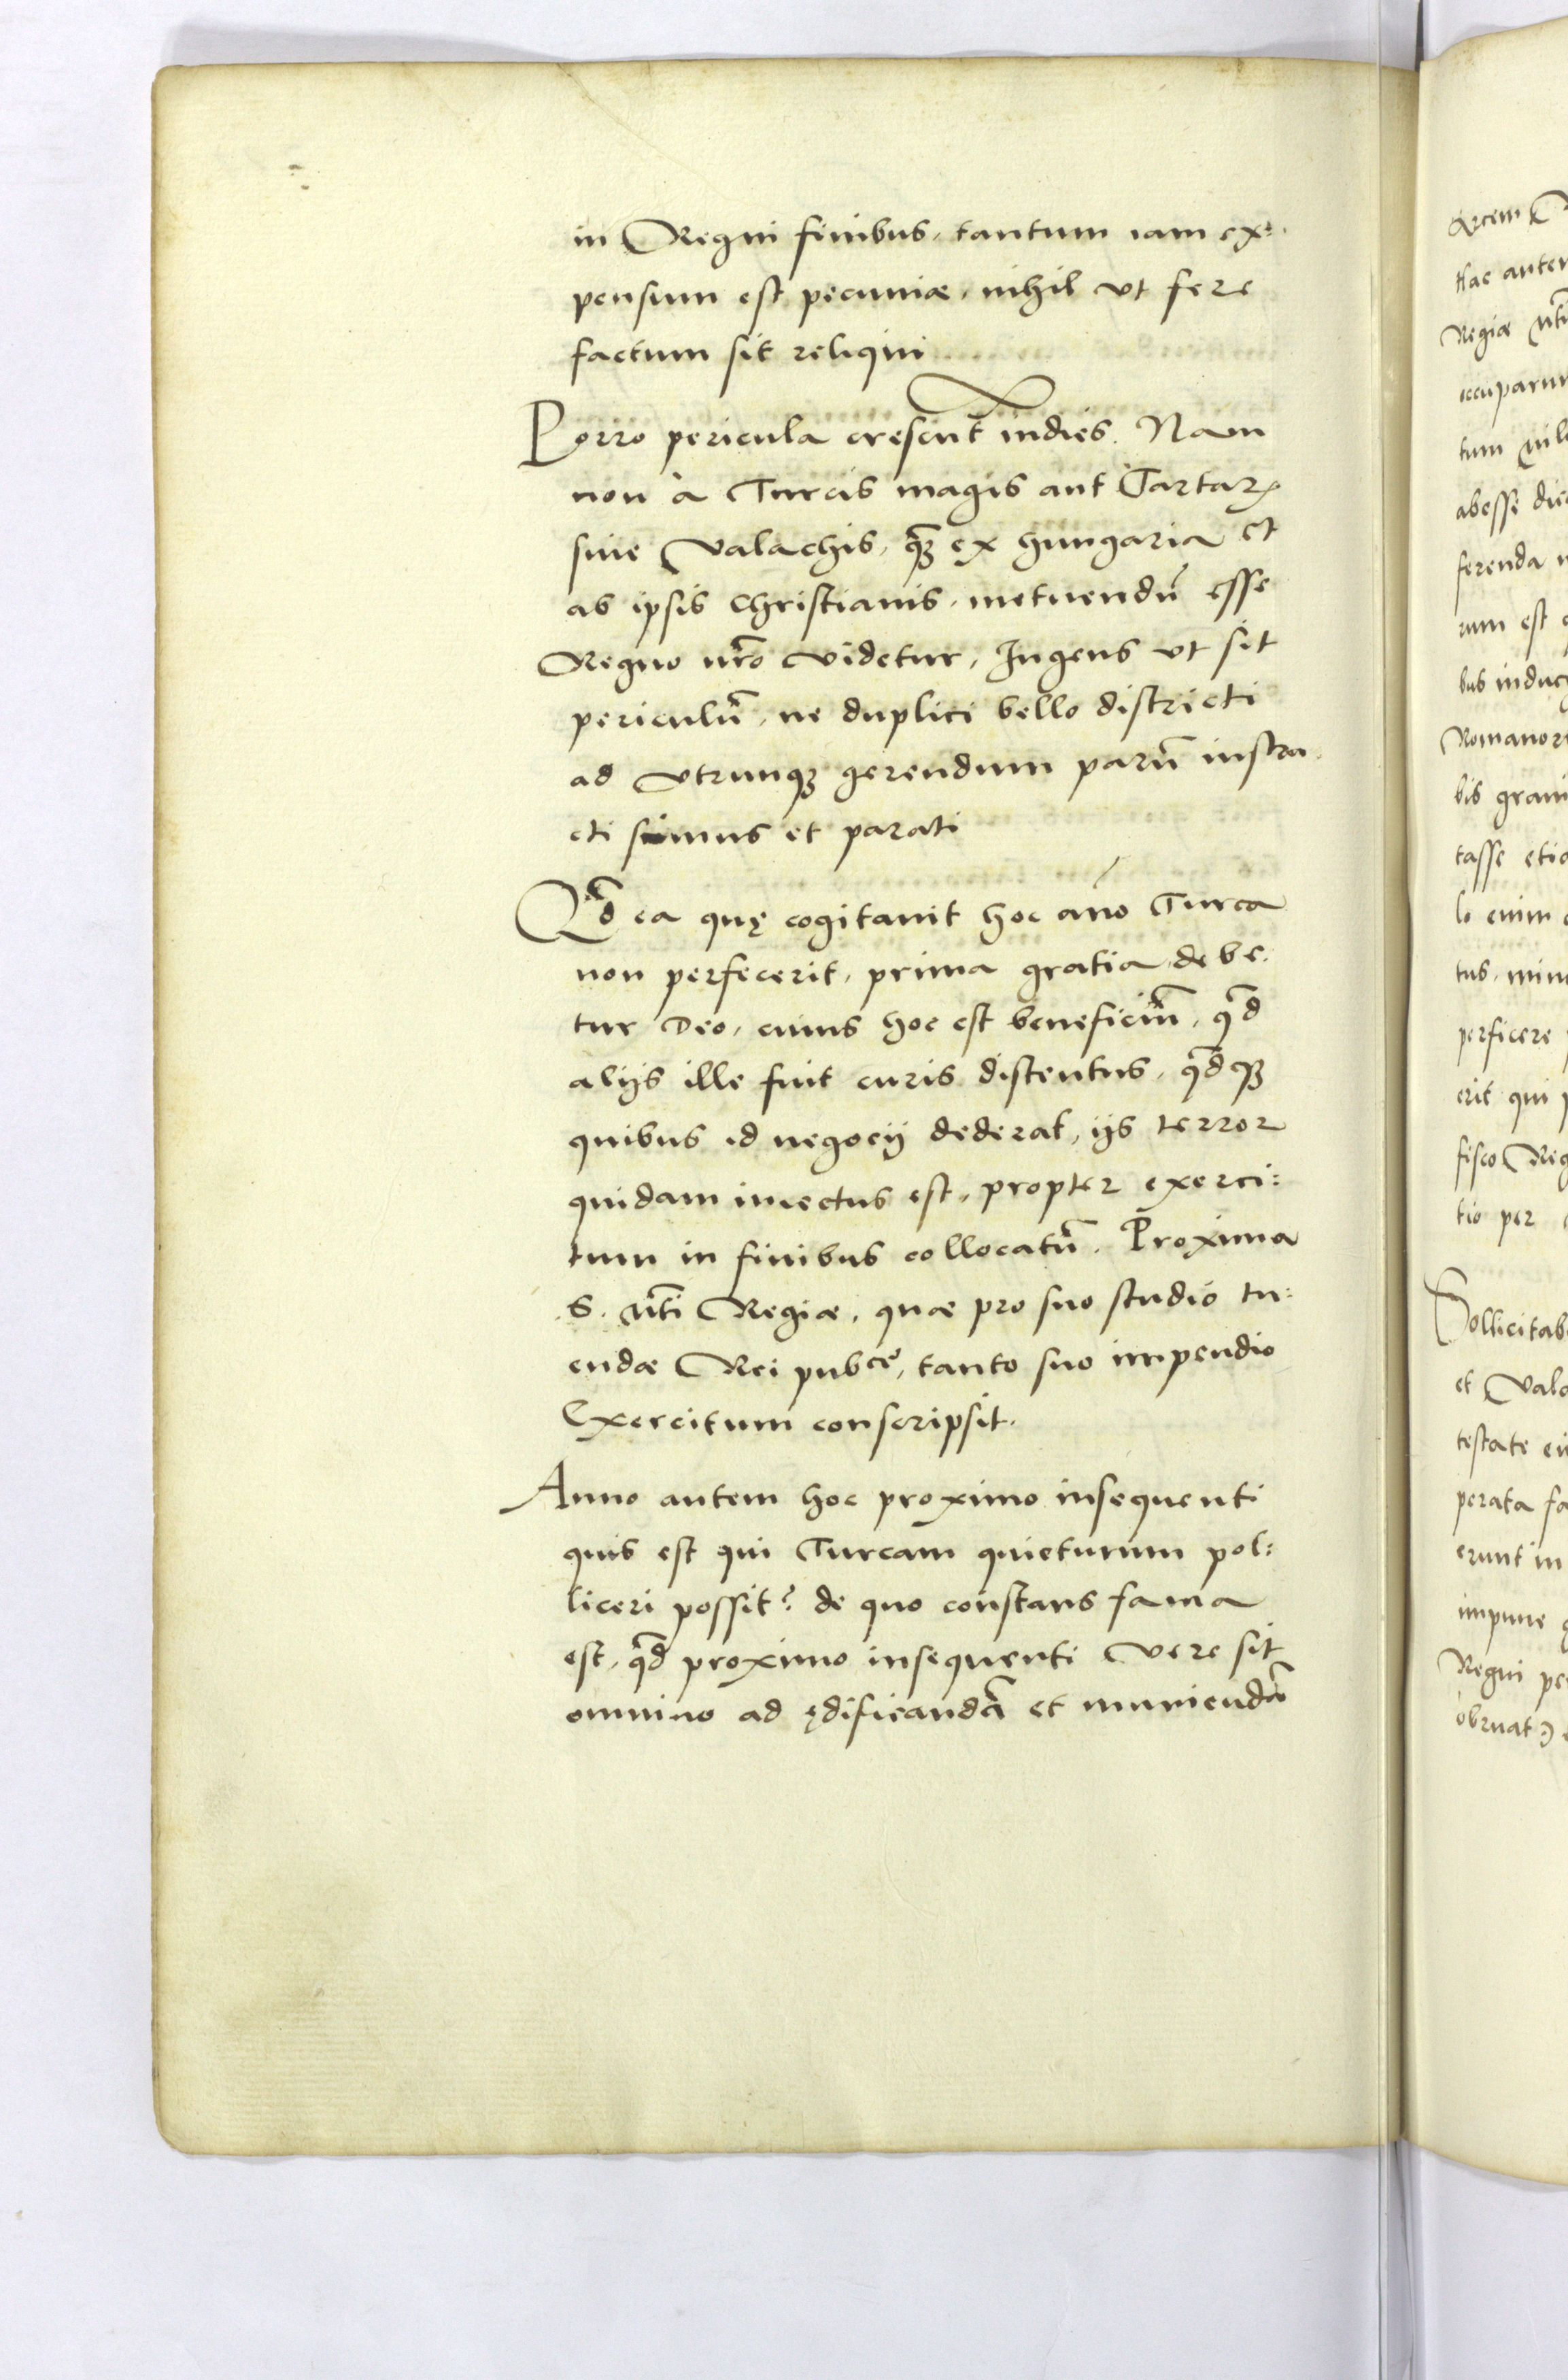 in Regni finibus, tantum iam ex:
pensum est pecuniæ, nihil vt fere
factum sit reliqui
Porro pericula crescut̃ indies. Nam
non à Turcis magis aut Tartaꝝ
siue Valachis, q̃ꝫ ex hungaria et
ab ipsis Christianis, metuendũ esse
Regno nr̃o videtur, Ingens vt sit
periculũ, ne duplici bello districti
ad vtrunqꝫ gerendum parũ instru
cti simus et parati
Qđ ea quę cogitauit hoc ano Turca
non perfecerit, prima gratia debe
tur Deo, cuius hoc est beneficiũ, qđ
alijs ille fuit curis distentus, qđqꝫ
quibus id negocij dederat, ijs terror
quidam iniectus est, propter exerci:
tum in finibus collocatũ. Proxima
S. Mti Regiæ, quæ pro suo studio tu:
endæ Rei pubcę, tanto suo impendio
Exercitum conscripsit.
Anno autem hoc proximo insequenti
quis est qui Turcam quieturum pol:
liceri possit? de quo constans fama
est, qđ proximo insequenti vere sit
omnino ad ędificandã et muniendã
Arcem
Hac autem
Regiæ Mti
occuparun
tum
abesse
ferenda
rum est
bus induc
Romanor
bis graui
tasse etia
lo enim
tus,
perficere
erit qui
fisco Reg
tio per
Sollicitab
et Vala
testate
perata fa
erunt in
impune
Regni pe
obruat